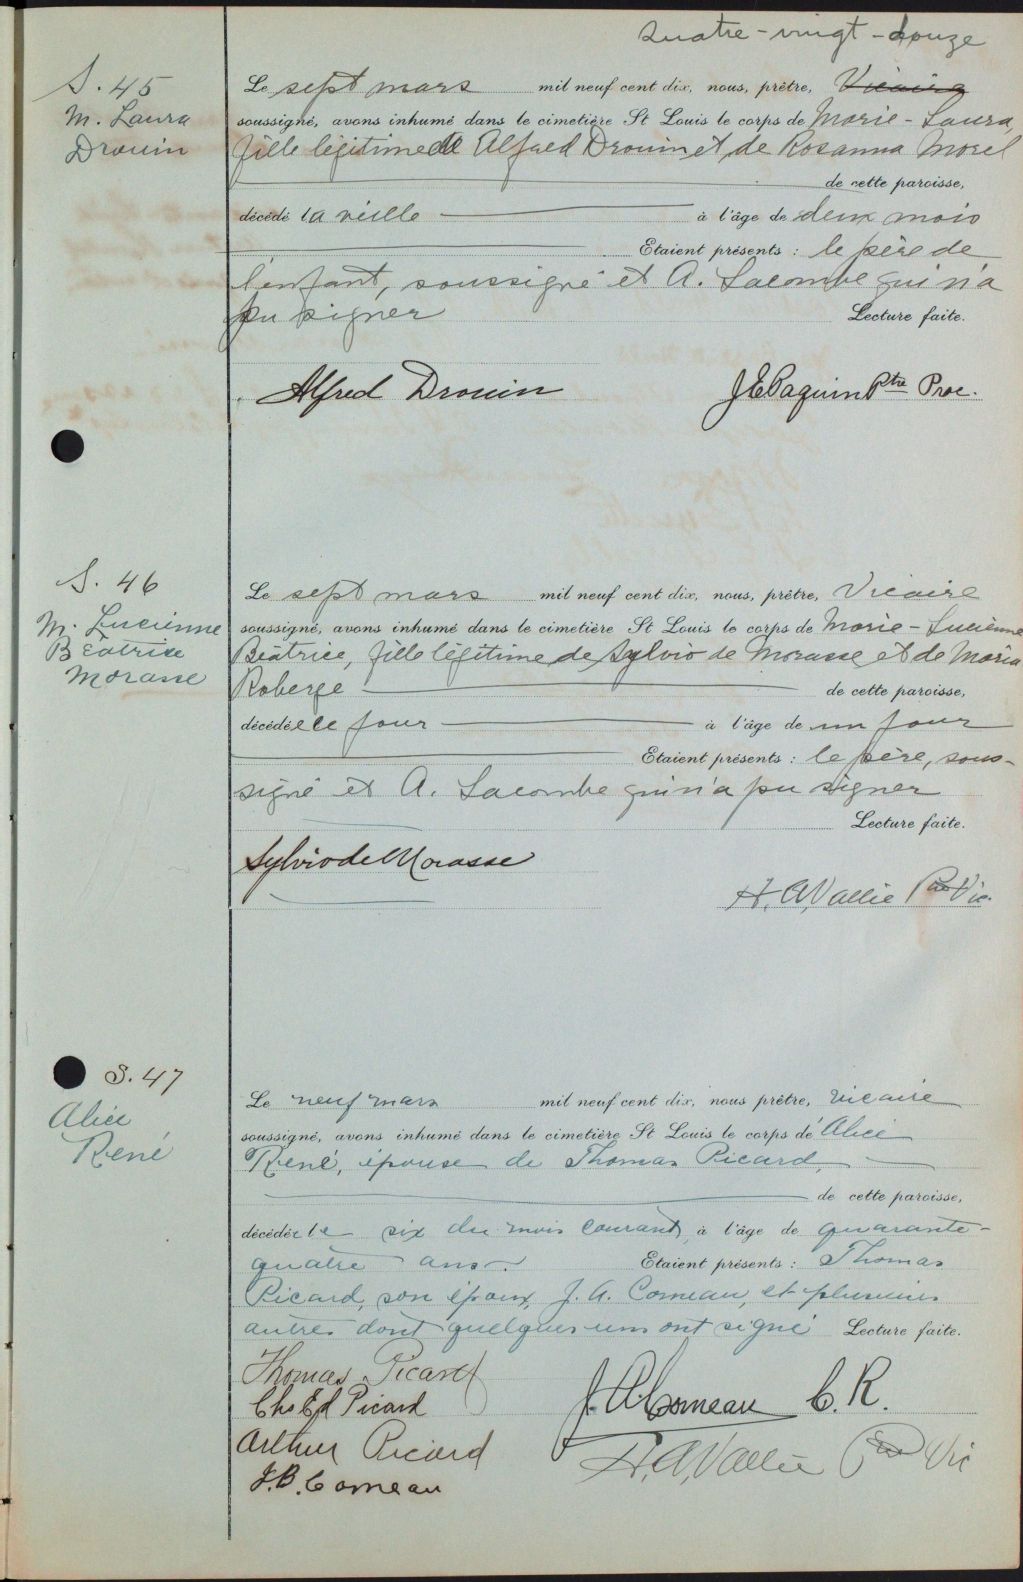 Quatre-vingt-douze
S. 45
M. Laura
Drouin
Le sept mars mil neuf cent dix, nous, prêtre, Vicaire
soussigné, avons inhumé dans le cimetière St Louis le corps de Marie-Laura,
fille légitime de Alfred Drouin et de Rosanna Morel
de cette paroisse,
décédé la veille à l'âge de deux mois
Etaient présents : le père de
l'enfant, soussigné et A. Lacombe qui n'a
pu signer Lecture faite.
Alfred Drouin J E Paquin Ptre Proc.
S. 46
M. Lucienne
Béatrice
Morasse
Le sept mars mil neuf cent dix, nous, prêtre, Vicaire
soussigné, avons inhumé dans le cimetière St Louis le corps de Marie-Lucienne
Béatrice, fille légitime de Sylvio de Morasse et de Maria
Roberge de cette paroisse,
décédée ce jour à l'âge de un jour
Etaient présents : le père, sous-
signé et A. Lacombe qui n'a pu signer
Lecture faite.
Sylvio de Morasse
H. A. Vallée Ptre Vic.
S. 47
Alice
René
Le neuf mars mil neuf cent dix, nous prêtre, vicaire
soussigné, avons inhumé dans le cimetière St Louis le corps de Alice
René, épouse de Thomas Picard,
de cette paroisse,
décédée le six du mois courant, à l'âge de quarante-
quatre ans. Etaient présents : Thomas
Picard, son époux, J. A. Comeau, et plusieurs
autres dont quelques uns ont signé Lecture faite.
Thomas Picard
Chs Ed Picard J. A. Comeau C. R.
Arthur Picard H. A. Vallée Ptre Vic
J. B. Comeau